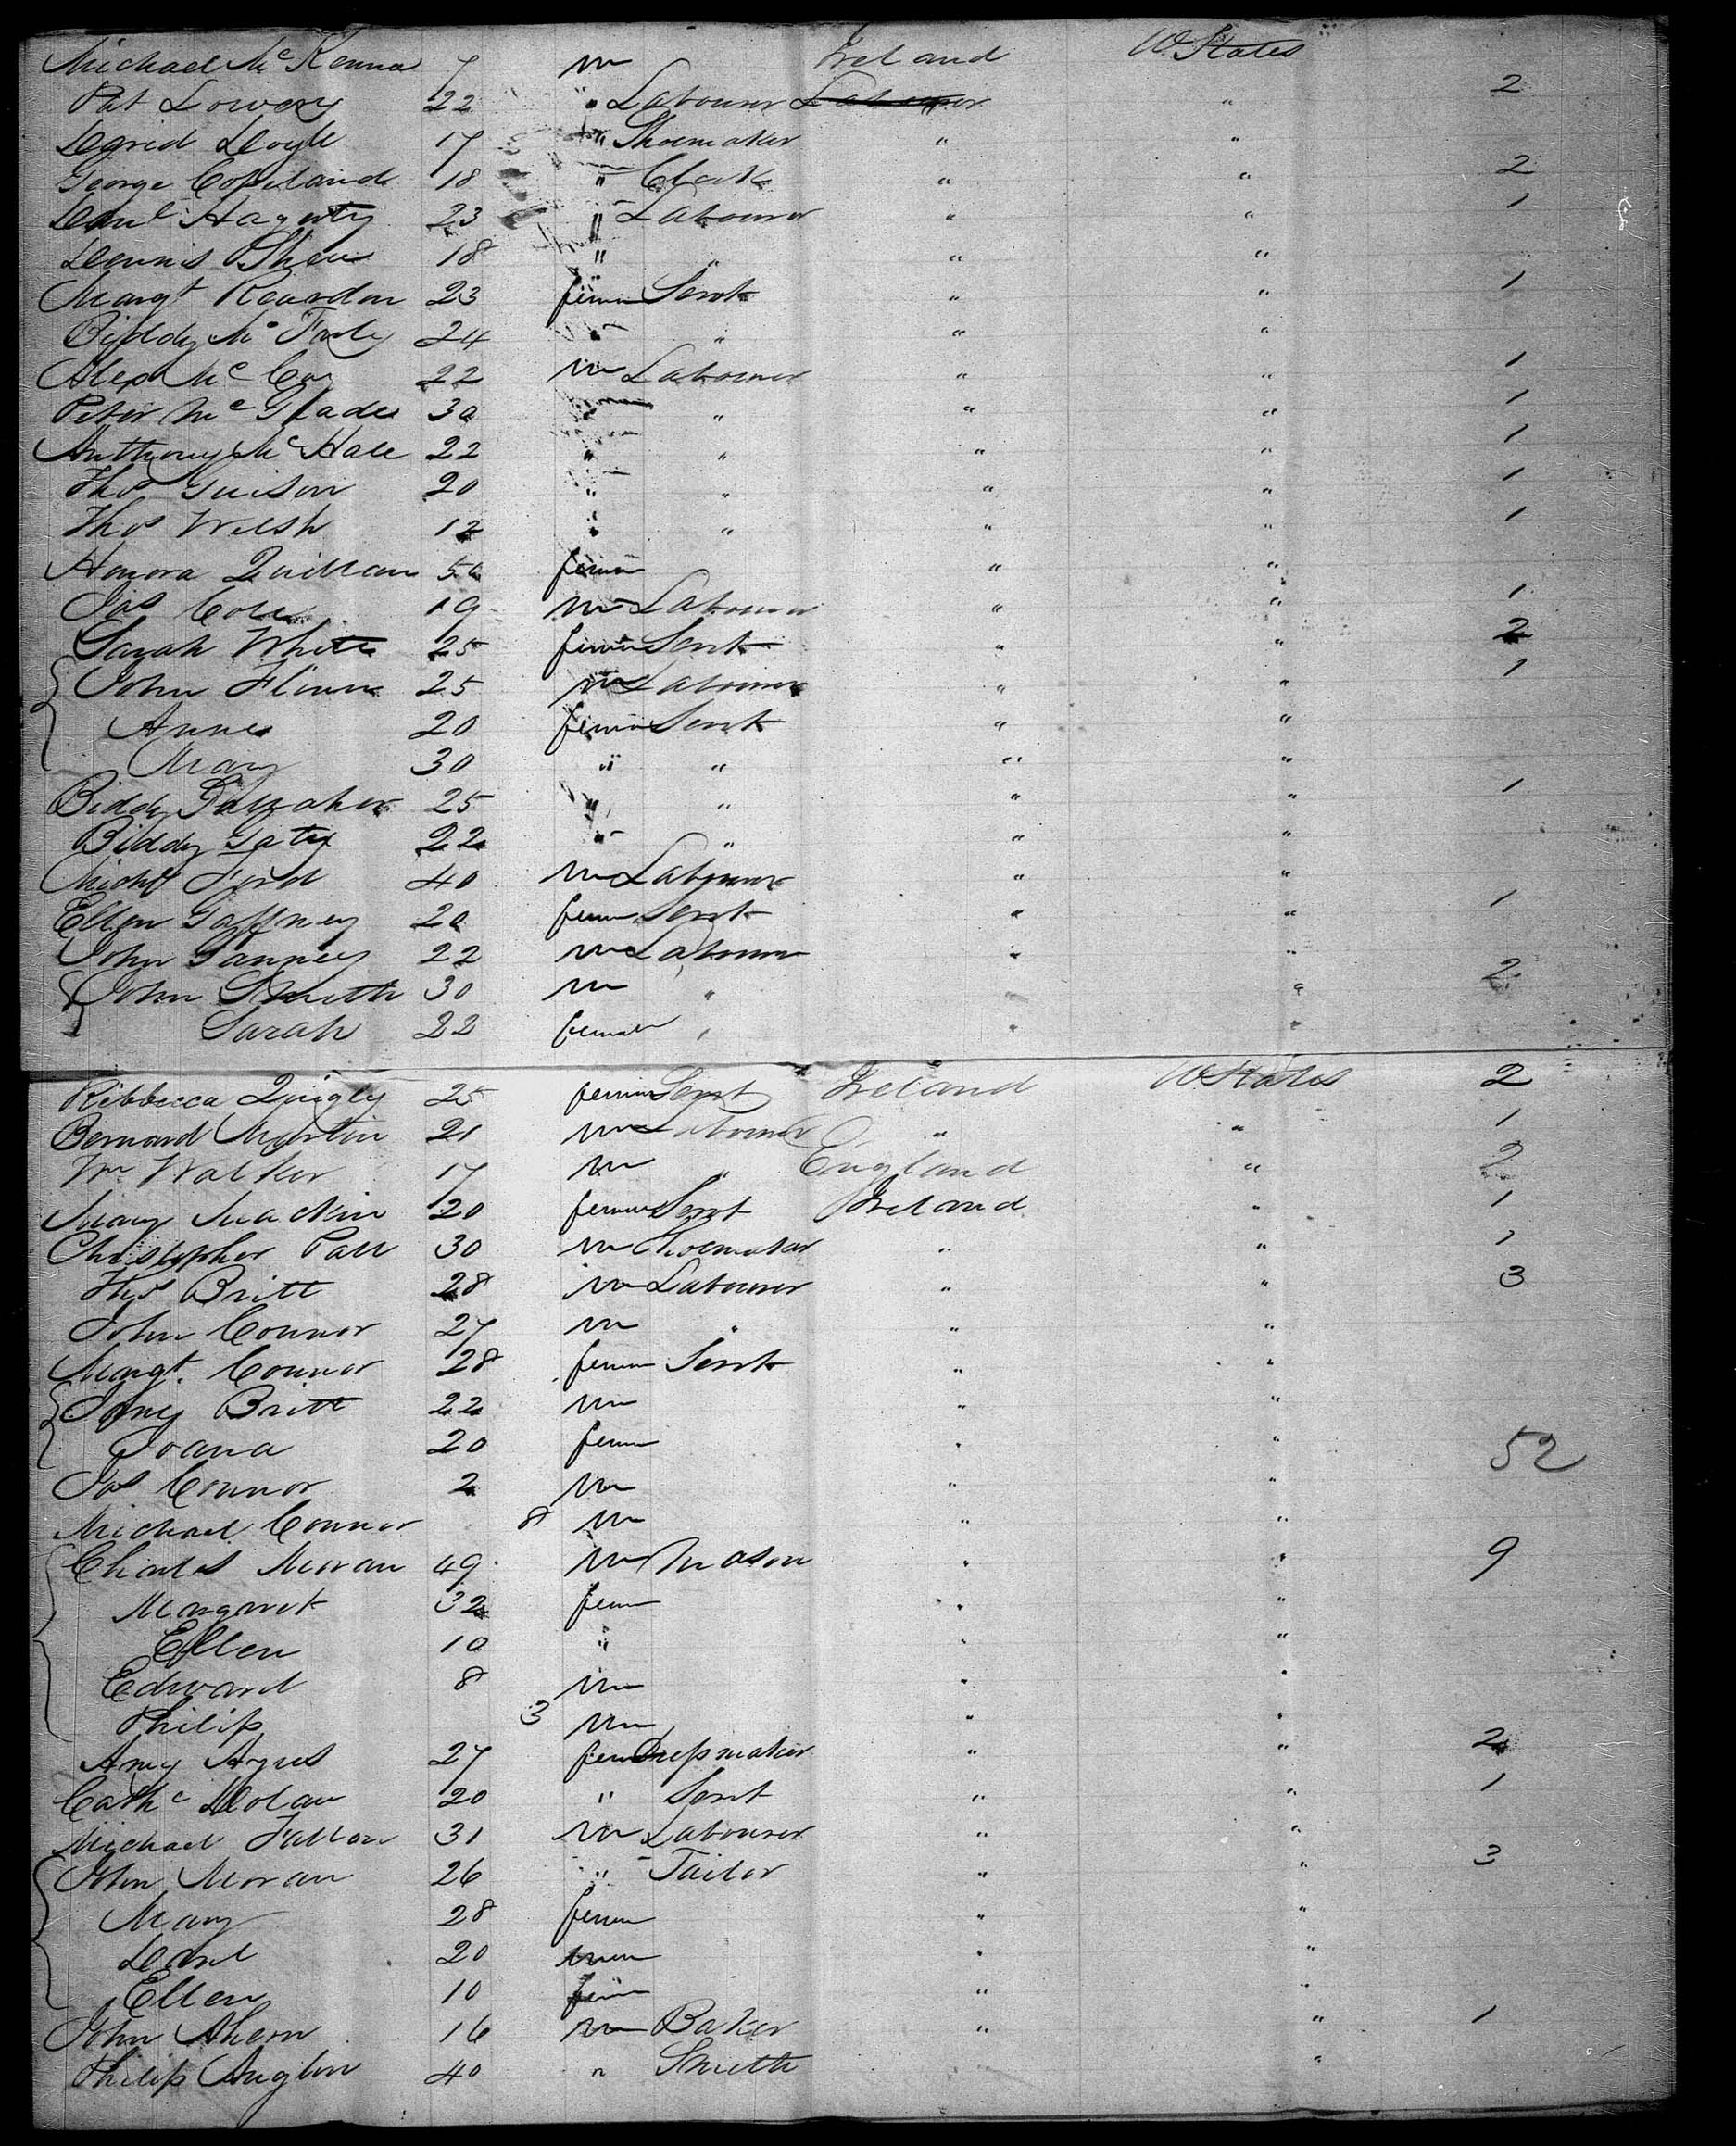 Michael McKenna 7 m Ireland U States
Pat Lowery 22 " Labourer Labourer " 2
David Doyle 17 " Shoemaker " "
George Copeland 18 " Clerk " " 2
Danl Hagerty 23 " Labourer " " 1
Dennis Shea 18 " " " "
Margt Reardon 23 fem Servt " " 1
Biddy Mc 24 " " " "
Alex McCoy 22 m Labourer " " 1
Peter McGlade 30 " " " 1
Anthony McHale 22 " " " " 1
Thos 20 " " " " 1
Thos Welsh 12 " " " " 1
Honora Quillan 50 fem " "
Jas Cole 19 m Labourer " " 1
Sarah White 25 fem Servt " " 2
John Flinn 25 m Labourer " " 1
Anne 20 fem Servt " "
Mary 30 " " " "
Biddy 25 " " " " 1
Biddy 22 " " " "
Michl Ford 40 m Labourer " "
Ellen Gaffney 20 fem Servt " " 1
John 22 m Labourer " "
John Smith 30 m " " " 2
Sarah 22 female " " "
Ribbecca Quigly 25 fem Servt Ireland U States 2
Bernard Martin 21 m Labourer " " 1
Wm Walker 17 m " England " 2
Mary Mackin 20 fem Servt Ireland " 1
Christopher 30 m Shoemaker " " 1
Thos Britt 28 m Labourer " " 3
John Connor 27 m " " "
Margt. Connor 28 fem Servt " "
Britt 22 m " "
Joana 20 fem " " 52
Jas Connor 2 m " "
Michael Connor 8 m " "
Charles Moran 49 m Mason " " 9
Margaret 32 fem " "
Ellen 10 " " "
Edward 8 m " "
Philip 3 m " "
Amy Ayres 27 fem Dressmaker " " 2
Cathe Dolan 20 " Servt " " 1
Michael Fallon 31 m Labourer " "
John Moran 26 " Tailor " " 3
Mary 28 fem " "
Danl 20 m " "
Ellen 10 fem " "
John Ahern 16 m Baker " " 1
Philip 40 " Smith "